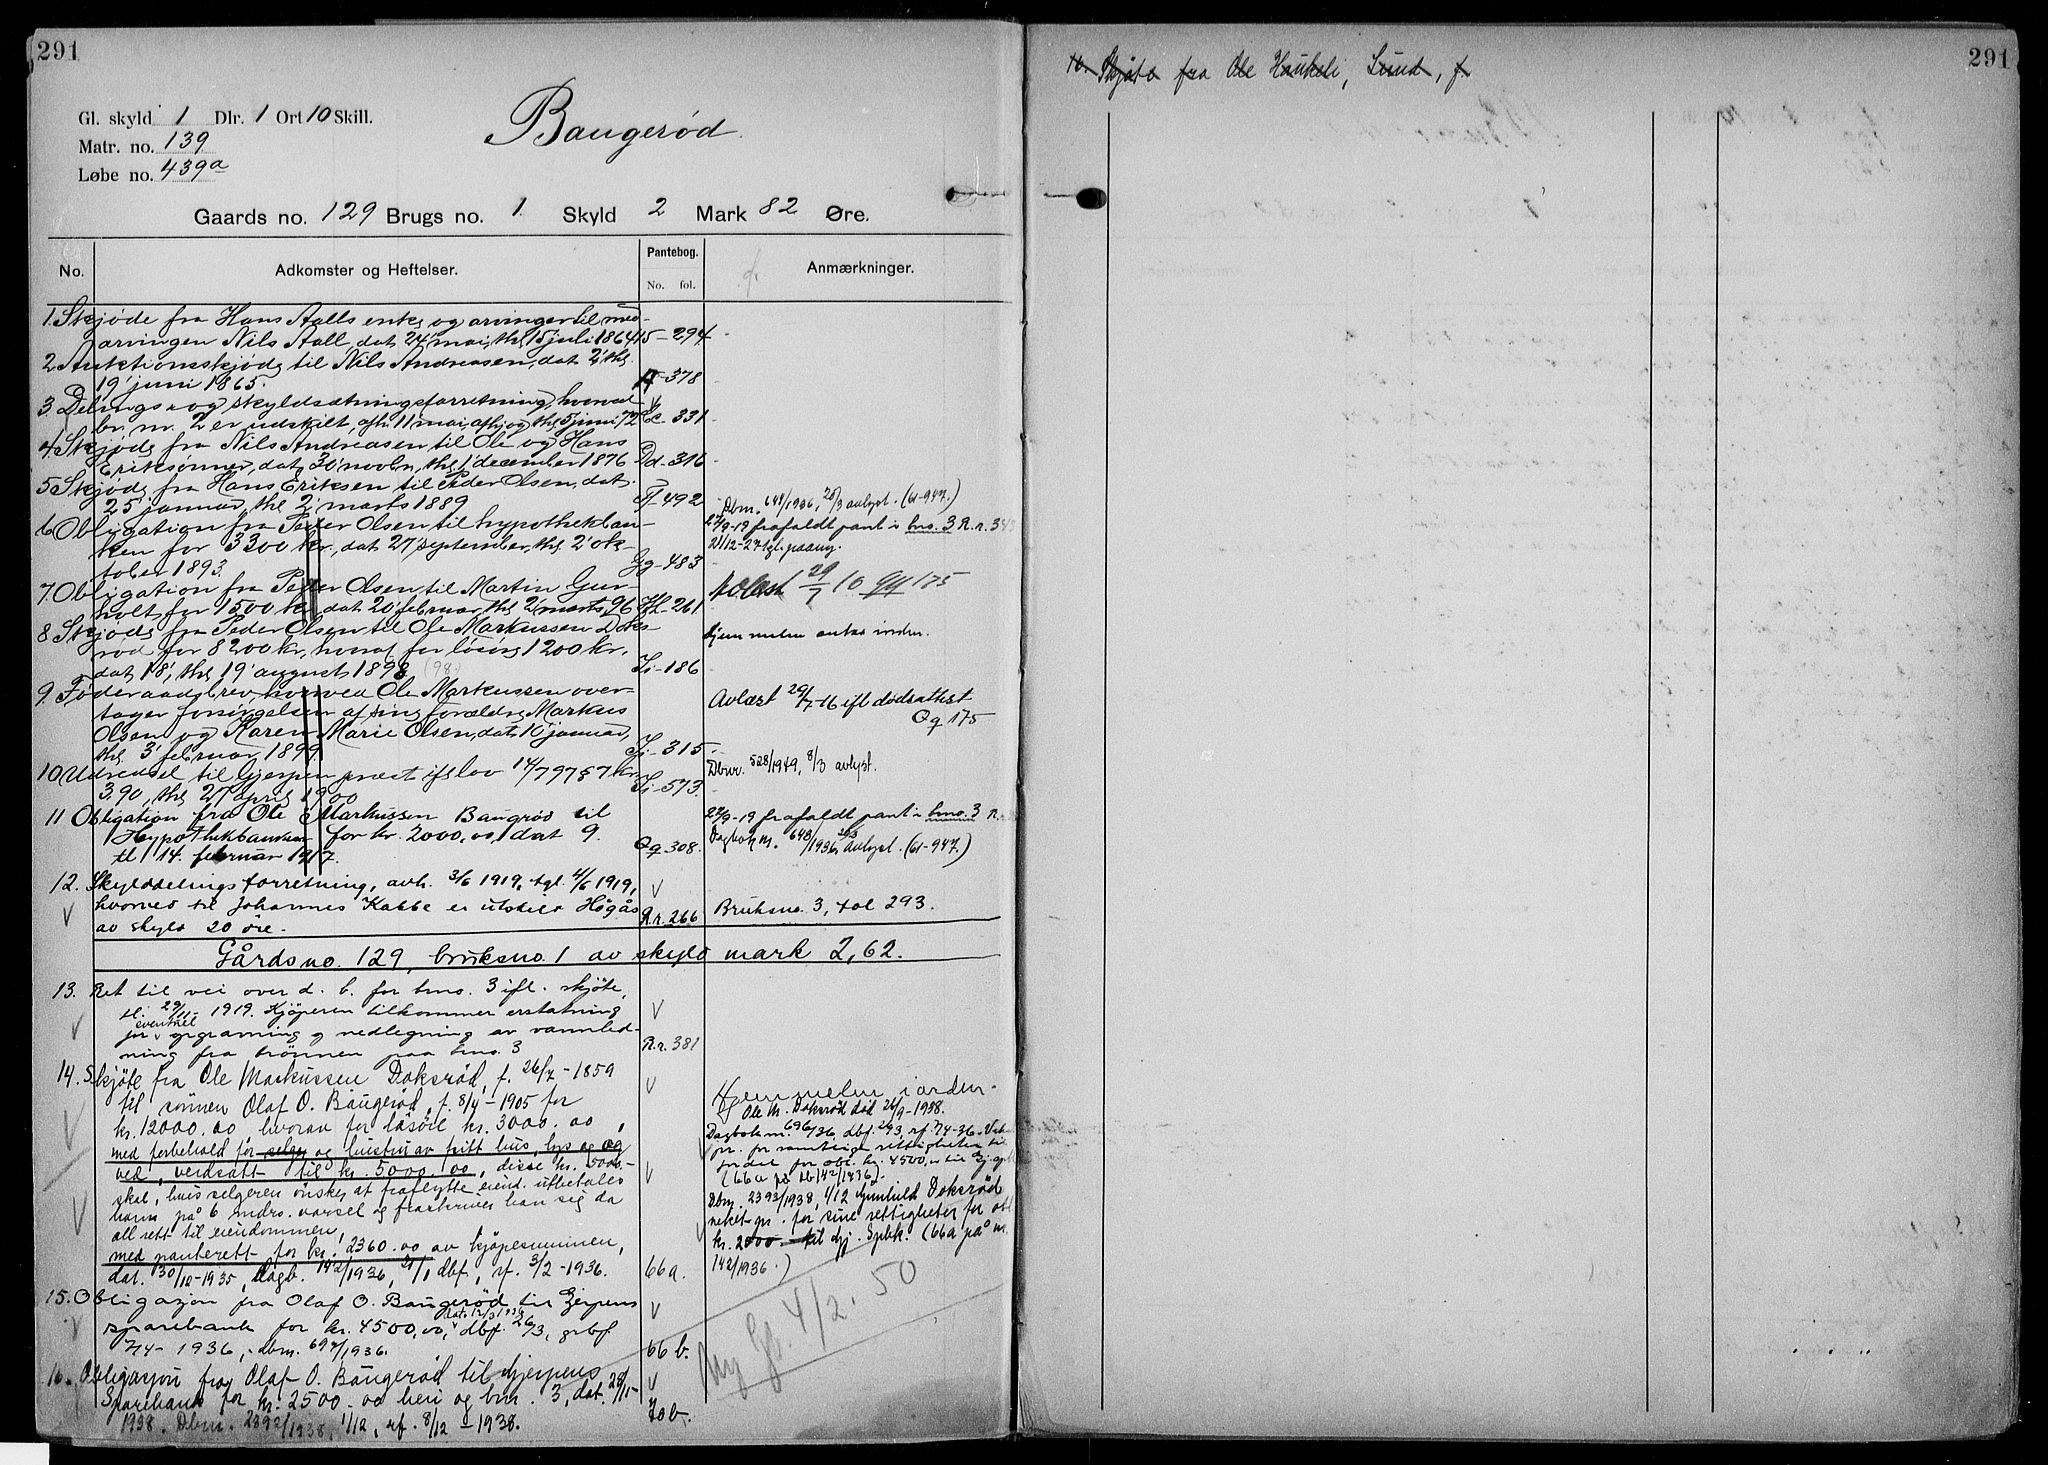 291
Gl. skyld 1 Dlr. 1 Ort 10 Skill.
Matr. no. 139
Løbe no. 439a
Baugerød
Gaards no. 129 Brugs no. 1 Skyld 2 Mark 82 Øre.
No. Adkomster og Heftelser. Pantebog. No. fol. Anmærkninger.
1. Skjøde fra Hans Aalls enke og arvinger til med-
arvingen Nils Aall, dat 24 mai, thl 15 juli 1864 15-294
2 Auktionsskjøde til Nils Andreasen, dat 2, thl.
19 juni 1865. 378
3. Delings- og skyldsætningsforretning, hvorved
br. nr. 2 er udskilt, afh. 11 mai, afhj og thl 5 juni 72 Cc-331
4 Skjøde fra Nils Andreasen til Ole og Hans
Eriksønner, dat 30 novbr, thl 1 december 1876 Dd-316
5 Skjøde fra Hans Eriksen til Peder Olsen, dat.
25 januar, thl 2 marts 1889 Ff-492
6 Obligation fra Peder Olsen til hypothekban-
ken for 3300 kr., dat 27 september, thl 2 ok-
tober 1893. Gg-483
Dbnr. 649/1936, 28/3 avlyst. (61-947.)
27/9-19 frafaldt pant i bno. 3 R.r. 343
21/12-27 tgl. paany.
7 Obligation fra Peder Olsen til Martin Gur-
holt for 1500 kr, dat 20 februar, thl 2 marts 96 Hh-261
avlæst 29/7 16 Qq 175
8 Skjøde fra Peder Olsen til Ole Markussen Doks-
rød for 8200 kr, hvoraf for løsøre 1200 kr,
dat 18, thl 19 august 1898 (98.) Ii-186
hjemmelen antas i orden.
9. Føderaadsbrev hvorved Ole Markussen over-
tager forsørgelsen af sine forældre Markus
Olsen og Karen Marie Olsen, dat 10 januar,
thl 3 februar 1899. Ii-315
Avlæst 29/7-16 ifl dødsattest
Qq 175
10 Udredsel til Gjerpen præst if lov 14/7 97 § 7 kr
3.90, thl 27 april 1900 Ii-573.
Dbnr. 528/1949, 8/3 avlyst.
11 Obligation fra Ole Markussen Baugrød til
Hypothekbanken for kr. 2000,00, dat 9.
tl 14. februar 1917. Qq 308.
27/9-19 frafaldt pant i bno. 3 R.
Dagbok nr. 648/1936, 28/3 avlyst. (61-947.)
12. Skylddelingsforretning, avh. 3/6 1919, tgl. 4/6 1919,
hvorved til Johannes Kabbe er utskilt Høgås
av skyld 20 øre. R.r. 266 Bruksno. 3, fol 293.
Gårdsno. 129, bruksno. 1 av skyld mark 2,62.
13. Ret til vei over d. b. for bno. 3 ifl. skjøte,
tl. 29/11-1919. Kjøperen tilkommer erstatning
for eventuel opgravning og nedlegning av vannled-
ning fra brønnen paa bno. 3 R.r. 381
14. Skjøte fra Ole Markussen Doksrød, f. 26/7-1859
til sønnen Olaf O. Baugerød, f. 8/4-1905 for
kr. 12000.00, hvorav for løsøre kr. 3000.00,
med forbehold for selger og hustru av fritt hus, lys og
ved, verdsatt til kr. 5000.00, disse kr. 5000.-
skal, hvis selgeren ønsker at fraflytte eiend. utbetales
ham på 6 mdrs. varsel og fraskriver han sig da
all rett til eiendommen,
med panterett for kr. 2360.00 av kjøpesummen,
dat. 30/10-1935, Dagb. 142/1936, 21/1 dbf, rf. 3/2-1936. 66a.
Hjemmelen i orden.
Ole M. Doksrød død 26/9-1938.
Dagbok nr. 696/36 dbf. 29/3, rf. 7/4-36. Vik-
pr. for samtlige rettigheter til
fordel for obl. kr. 4500,- til Gj. spbk
(66a på db 142/1936).
Dbnr. 2393/1938, 1/12 Gunhild Doksrød
veket pr. for sine rettigheter for obl
kr. 2500.- til Gj. Spbk. (66a på nr.
142/1936.)
15. Obligasjon fra Olaf O. Baugerød til Gjerpens
sparebank for kr. 4500,00, dat. 12/3 1936 dbf. 26/3, grbf.
7/4-1936, dbnr. 697/1936. 66 b.
16. Obligasjon fra Olaf O. Baugerød til Gjerpens
Sparebank for kr. 2500.00 heri og bnr. 3, dat. 28/11-
1938. Dbnr. 2392/1938, 1/12, rf. 8/12-1938. 70b.
Ny Gs. 4/2. 50
16. Skjøte fra Ole Haukeli, Lund, f
291